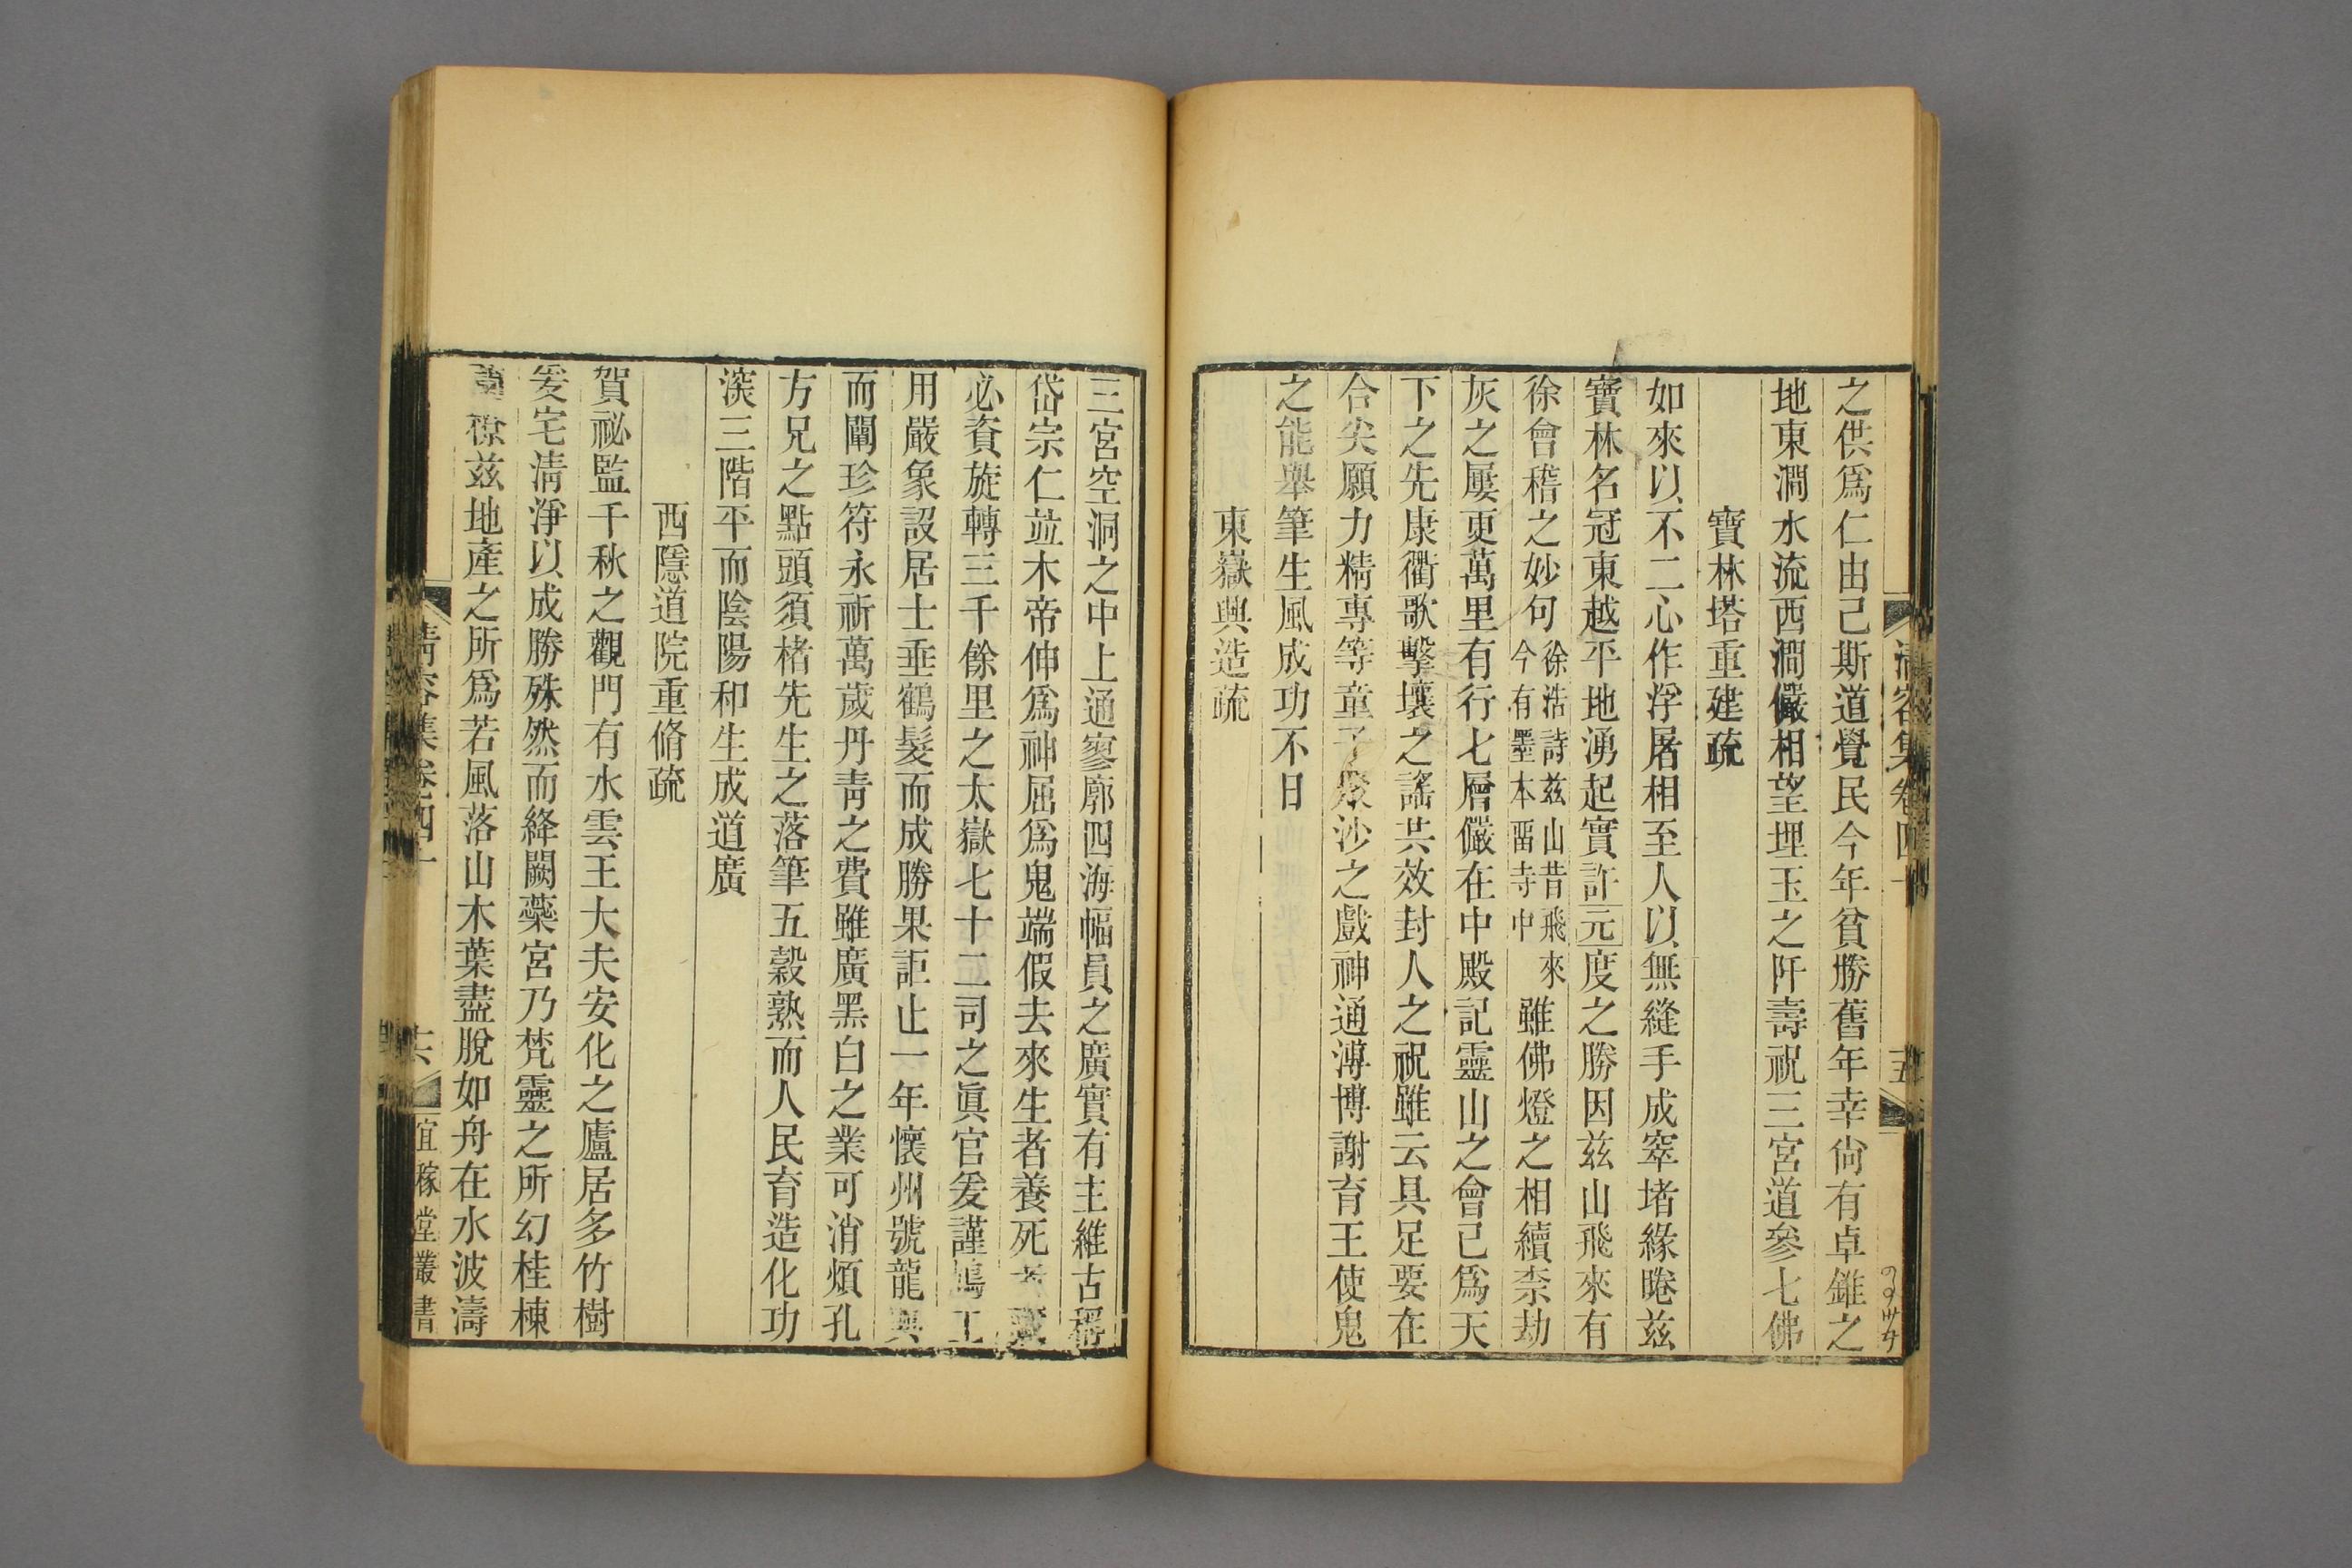 清容集卷四十
五
之供爲仁由己斯道覺民今年貧勝舊年幸尙有卓錐之
地東澗水流西澗儼相望埋玉之阡壽祝三宮道參七佛
寶林塔重建疏
如來以不二心作浮屠相至人以無縫手成窣堵緣睠兹
寶林名冠東越平地湧起實許元度之勝因兹山飛來有
徐會稽之妙句徐浩詩兹山昔飛來今有墨本畱寺中雖佛燈之相續柰劫
灰之屢更萬里有行七層儼在中殿記靈山之會已爲天
下之先康衢歌擊壤之謠共效封人之祝雖云具足要在
合尖願力精專等童子聚沙之戲神通溥博謝育王使鬼
之能舉筆生風成功不日
東嶽興造疏
三宮空洞之中上通寥廓四海幅員之廣實有主維古稱
岱宗仁竝木帝伸爲神屈爲鬼端假去來生者養死者藏
必資旋轉三千餘里之太嶽七十二司之眞官爰謹鳩工
用嚴象設居士垂鶴髮而成勝果詎止一年懷州號龍興
而闡珍符永祈萬歲丹靑之費雖廣黑白之業可消煩孔
方兄之點頭須楮先生之落筆五穀熟而人民育造化功
深三階平而陰陽和生成道廣
西隱道院重脩疏
賀祕監千秋之觀門有水雲王大夫安化之廬居多竹樹
爰宅淸淨以成勝殊然而絳闕蘂宮乃梵靈之所幻桂棟
蘭橑兹地產之所爲若風落山木葉盡脫如舟在水波濤
清容集卷四十
六
宜稼堂叢書